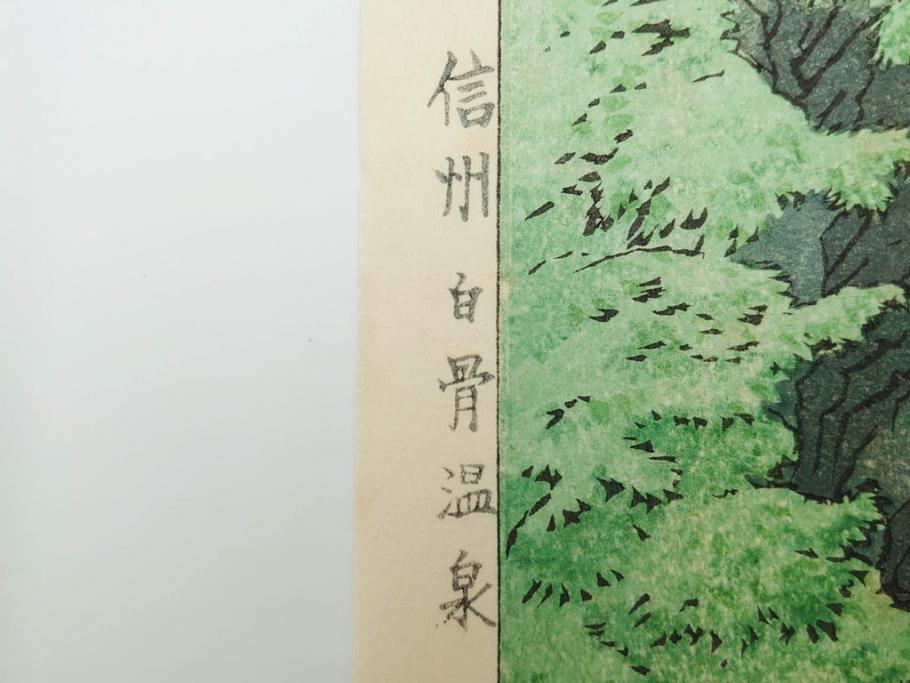 信州 白骨温泉